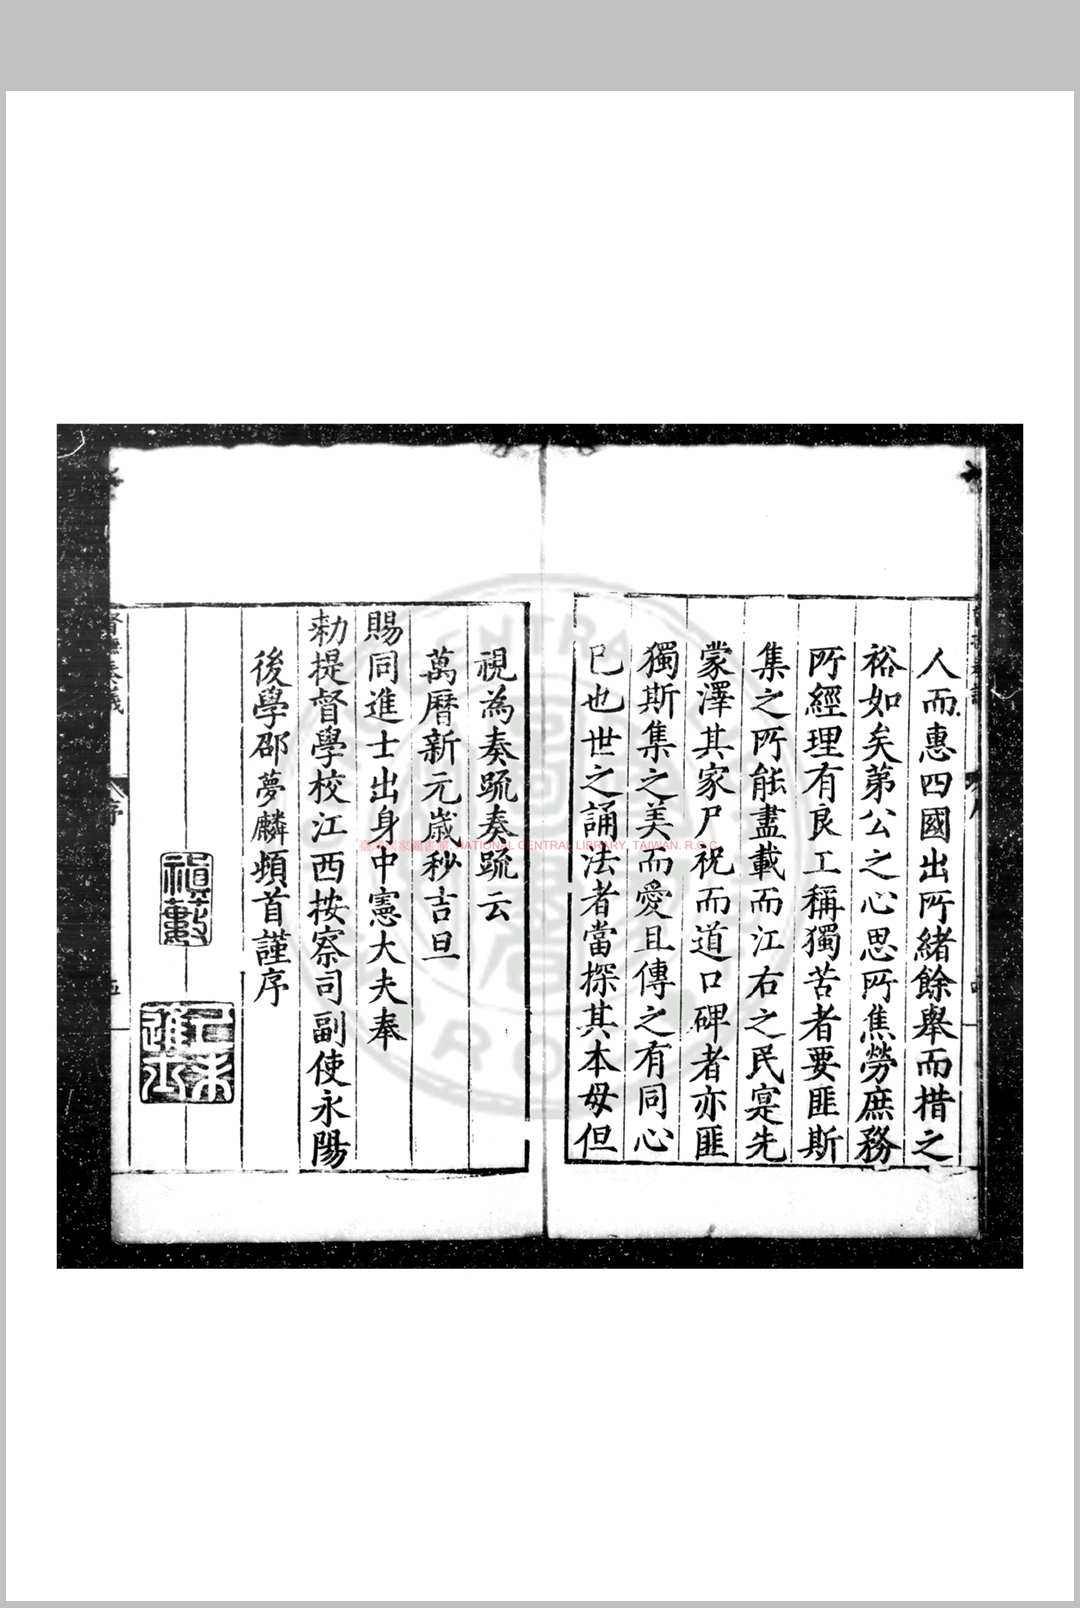 人而惠四國出所緒餘舉而措之
裕如矣第公之心思所焦勞庶務
所經理有良工稱獨苦者要匪斯
集之所能盡載而江右之民寔先
蒙澤其家尸祝而道口碑者亦匪
獨斯集之美而愛且傳之有同心
已也世之誦法者當探其本毋但
視為奏疏奏疏云
萬曆新元歲秒吉旦
賜同進士出身中憲大夫奉
勑提督學校江西按察司副使永陽
後學邵夢麟頓首謹序
己未進士
督撫奏議
序
五
NATIONAL CENTRAL LIBRARY, TAIWAN. R.O.C